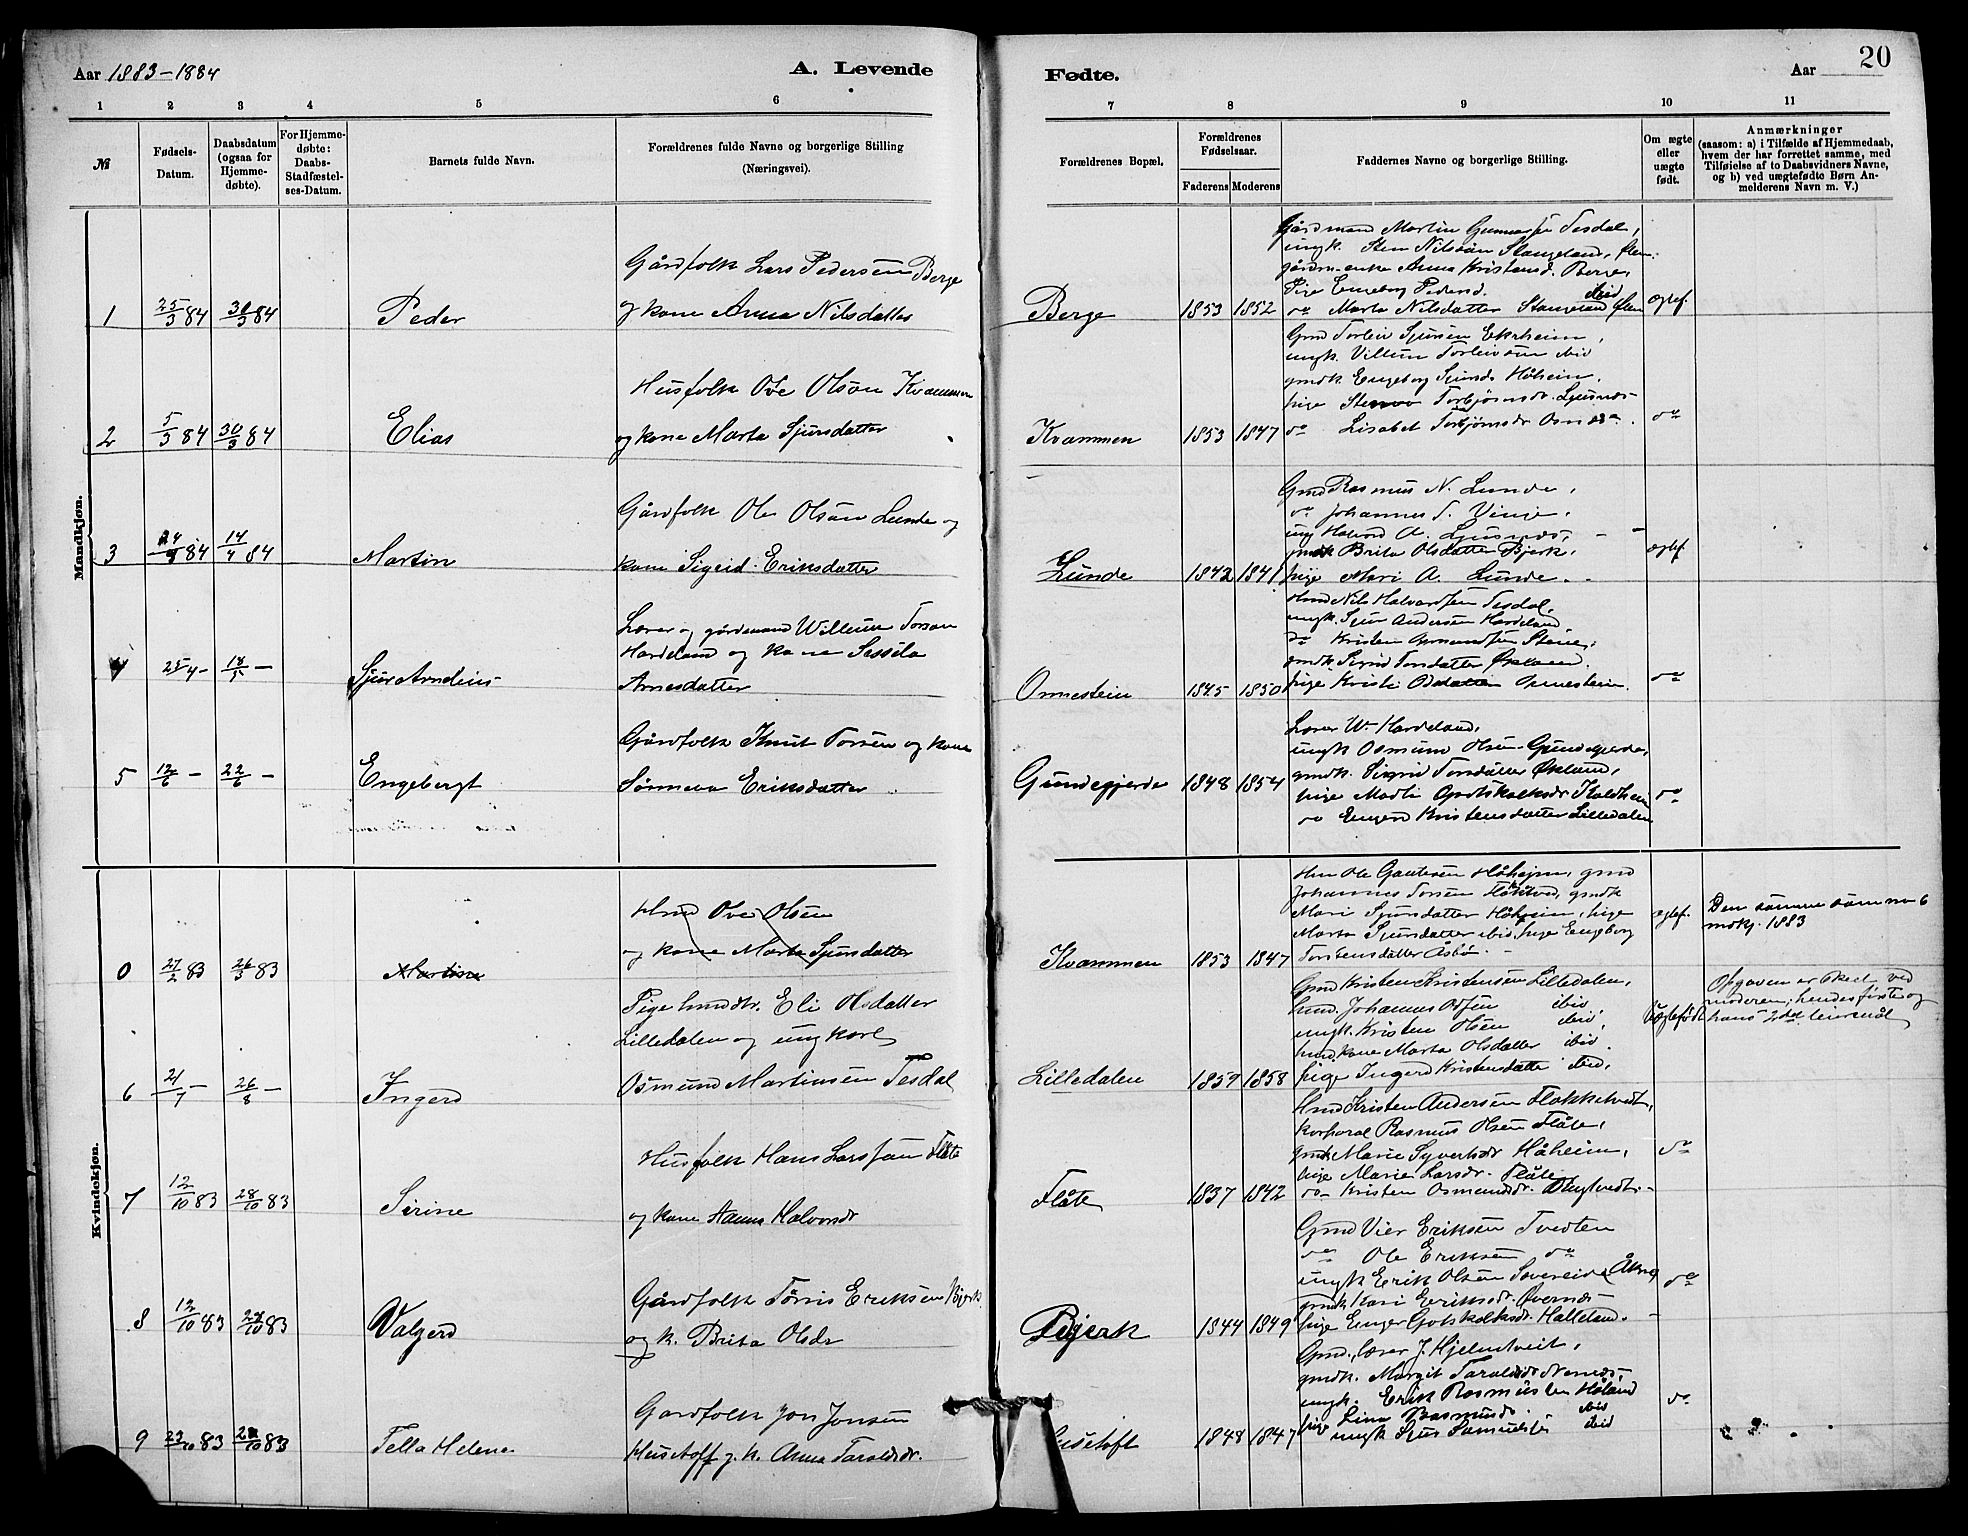 Aar 1883-1884
A. Levende
Fødte.
Aar
20
1 2 3 4 5 6 7 8 9 10 11
№
Fødsels-
Datum.
Daabsdatum
(ogsaa for
Hjemme-
døbte).
For Hjemme-
døbte:
Daabs-
Stadfæstel-
ses-Datum.
Barnets fulde Navn.
Forældrenes fulde Navne og borgerlige Stilling
(Næringsvei).
Forældrenes Bopæl.
Forældrenes
Fødselsaar.
Faderens Moderens
Faddernes Navne og borgerlige Stilling.
Om ægte
eller
uægte
født.
Anmærkninger
(saasom: a) i Tilfælde af Hjemmedaab,
hvem der har forrettet samme, med
Tilføielse af to Daabsvidners Navne,
og b) ved uægtefødte Børn An-
melderens Navn m. V.)
Mandkjøn.
1 25/3 84 30/3 84 Peder
Gårdfolk Lars Pedersen Berge
og kone Anna Nilsdatter
Berge 1853 1852
Gårdmand Martin Tesdal,
ungk. Sten Nilsøn Stangeland,
gårdm-enke Anna Kristensd. Berge,
Pige Engeborg Pedersd. ibid
do Marta Nilsdatter
ægtef.
2 5/3 84 30/3 84 Elias
Husfolk Ove Olsøn Kvammen
og kone Marta Sjursdatter
Kvammen 1853 1847
Gmd Torleiv Sjursen Ekrheim,
ungk. Villum Torleivsøn ibid
gmdk. Engeborg Sjursd. Håheim.
pige Torbjørnsdr. Ljusnes
do Lisabet Torbjørnsdr Osnes
do
3 84 14/4 84 Martin
Gårdfolk Ole Olsøn Lunde og
kone Sigrid Eriksdatter
Lunde 1842 1841
Gmd Rasmus N. Lunde,
do Johannes T. Vinje,
ung Halvord A. Ljusnes,
gmdk Brita Olsdatter Bjerk,
pige Mari A. Lunde
ægtef.
4 25/4 - 18/5 - Sjur Arndeus
Lærer og gårdmand Willum Torsøn
Hardeland og kone Sessela
Arnesdatter
Ornestein 1845 1850
Hmd Nils Halvardsen Tesdal,
ungk. Sjur Andersen Hardeland
do Kristen
gmdk. Sigrid Torsdatter Økland.
pige Kristi Olsdatter Ornestein.
do
5 12/6 - 22/6 - Engebergt
Gårdfolk Knut Torsen og kone
Sønneva Eriksdatter
Gundegjerde 1848 1854
Lærer W. Hardeland,
ungk Osmund Olsen Gundegjerde,
gmdk. Sigrid Torsdatter Økland,
pige Madli
do Engerd Kristensdatter Lilledalen
do
Kvindekjøn.
0 27/2 83 26/3 83 Martine
Hmd Ove Olsen
og kone Marta Sjursdatter
Kvammen 1853 1847
Hm Ole Gautesen Håheim, gmd
Johannes Torsen, gmdk
Mari Sjursdatter Håheim, pige
Marta Sjursdatter ibid, pige Engeborg
Torstensdatter Åsbø
ægtef.
Den samme som no 6
mdkj. 1883
6 21/7 - 26/8 - Ingerd
Pige hmdtr. Eli Olsdatter
Lilledalen og ungkarl
Osmund Martinsen Tesdal
Lilledalen 1859 1858
Gmd Kristen Kristensen Lilledalen,
hmd. Johannes Olsen ibid,
ungk. Kristen Olsen ibid,
hmd. kone Marta Olsdatter ibid.
pige Ingerd Kristensdatter ibid,
Uægtefødt
Opgaven er skeet ved
moderen; hendes første og
hans 2det leiermål
7 12/10 83 28/10 83 Sirine
Husfolk Hans Larssen Flåte
og kone Hanna Halvorsdr
Flåte 1837 1842
Hmd Kristen Andersen Flokketvedt,
korporal Rasmus Olsen Flåte,
gmdk Marie Syvertsdr Håheim,
pige Marie Larsdr. Flåte
do Kristen Osmundsdr.
do
8 12/10 83 83 Valgerd
Gårdfolk Tørris Eriksen Bjerk
og k. Brita Olsdr
Bjerk 1844 1849
Gmd Vier Eriksen Tvedten
do Ole Eriksen do
ungk Erik Olsen Sovereide
gmdk Kari Eriksdr. Øvernes
pige Enger Gotskalksdr. Halleland.
do
9 23/10 83 28/10 83 Tella Helene
Gårdfolk Jon Jonsen
Husetoft g. k. Anna Taraldsdr.
Husetoft 1848 1847
Gmd., lærer J. Hjelmtveit,
gmdk. Margit Taraldsdr Nernes,
ungk. Erik Rasmussen Høland
pige Lina Rasmusd. ibid
ungk Sjur Samuelsen ibid
do